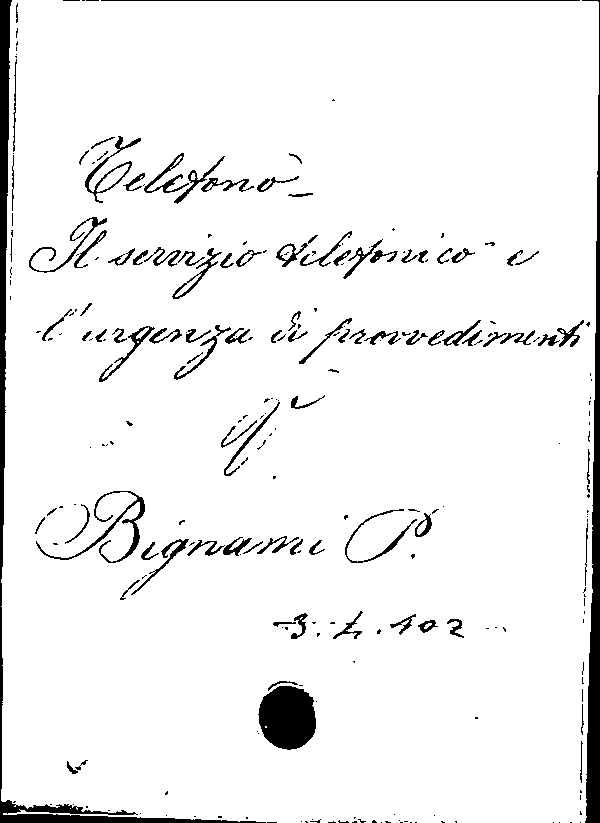 Telefono -
Il servizio telefonico e
l'urgenza di provvedimenti
V.
Bignami P.
3.L.102